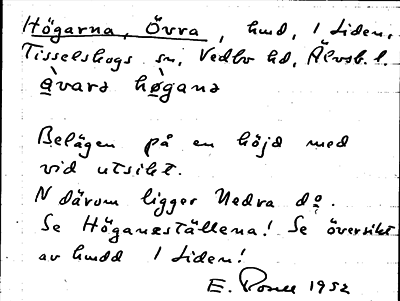 Högarna, Övra, hmd, i Liden,
Tisselskogs sn, Vedbo hd, Älvsb. l.
å̀varə hø̀ganə
Belägen på en höjd med
vid utsikt.
N därom ligger Nedra do.
Se Höganeställena! Se översikt
av hmdd i Liden!
E. 1952